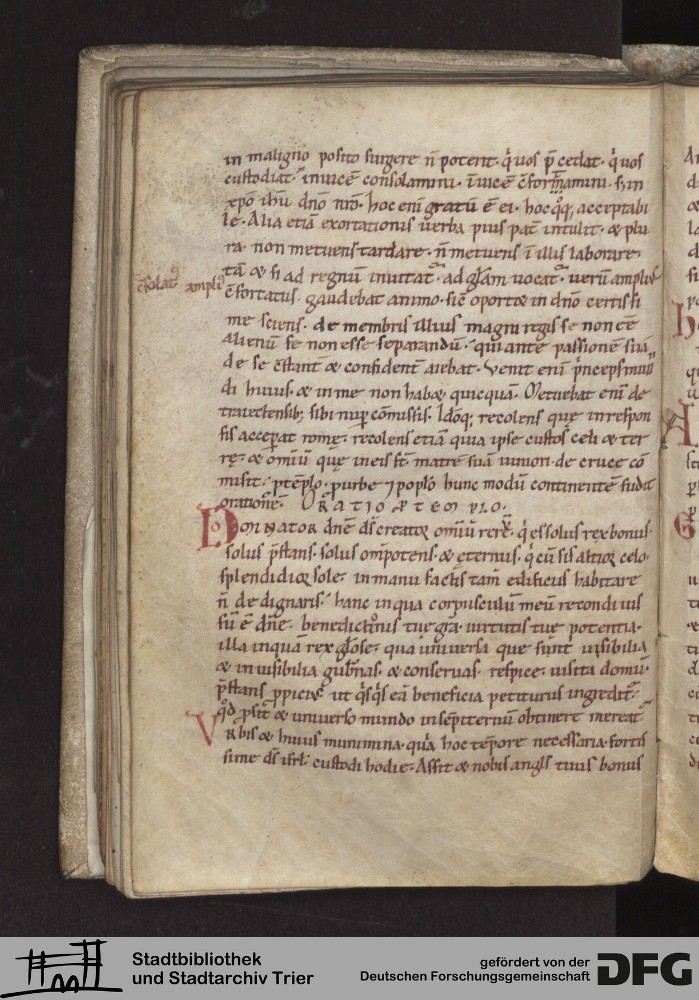 in maligno posito surgere n̄ poterit. q̇uos p̄cedat. q̇uos
custodiat. inuicē consolamini. īuicē c̄formamini. s; in
xp̄o ih̄u dn̄o nr̄o. hoc enī gratū ē ei. hoc q͛q; acceptabi
le. Alia etiā exortationis uerba pius pat̄ intulit. & plu
ra. non metuens tardare. n̄ metuens ī illis laborare.
tā & si ad regnū inuitat᷑. ad gl̄am uocat᷑. uerū amplius
c̄solat᷑ ampli᷒
c̄fortatus gaudebat animo. sic̄ oport& in dn̄o certissi
me sciens. de membris illius magni regis se non eē
alienū se non esse separandū. qui ante passionē suā
de se c̄stanť & confidenť aiebat. Venit enī p̄nceps mun
di huius. & in me non hab& quicquā. Metuebat enī de
traiectensib; sibi nup̄ cōmissis. Idōq; recolens quę in respon
sis acceperat romę. recolens etiā quia ipse custos celi & ter
rę. & omiū quę in eis st̄. matrē suā iunion. de cruce cō
misit. p̄ tēplo. p̄ urbe ⁊ poplō hunc modū continentē fudit
orationē. ORATIO P̄ TEMPLO.
DOMINATOR dn̄e ds̄ creator omiū rerū. q̇ es solus rex bonus.
solus p̄stans. solus omp̄otens. & ęternus. q̇ cū sis altior celo.
splendidior sole. in manu factis tam̄ edificiis habitare
n̄ dedignaris. hanc inqua corpusculū meū recondi uis
tuę grā. uirtutis tuę potentia.
illa inquam rex gl̄ose. qua uniuersa que sunt uisibilia
& inuisibilia gub̄nas. & conseruas. respice. uisita domū.
p̄stans ꝓpicius ut q̇sq̇s eā beneficia petiturus ingredit᷑.
& uniuerso mundo in sēpiternū obtinere mereat᷑.
VRbis & huius munimina. quia hoc tēpore necessaria. fortis
sime ds̄ isrl̄. custodi hodie. Assit & nobis angl̄s tuus bonus
Stadtbibliothek
und Stadtarchiv Trier
gefördert von der
Deutschen Forschungsgemeinschaft
DFG